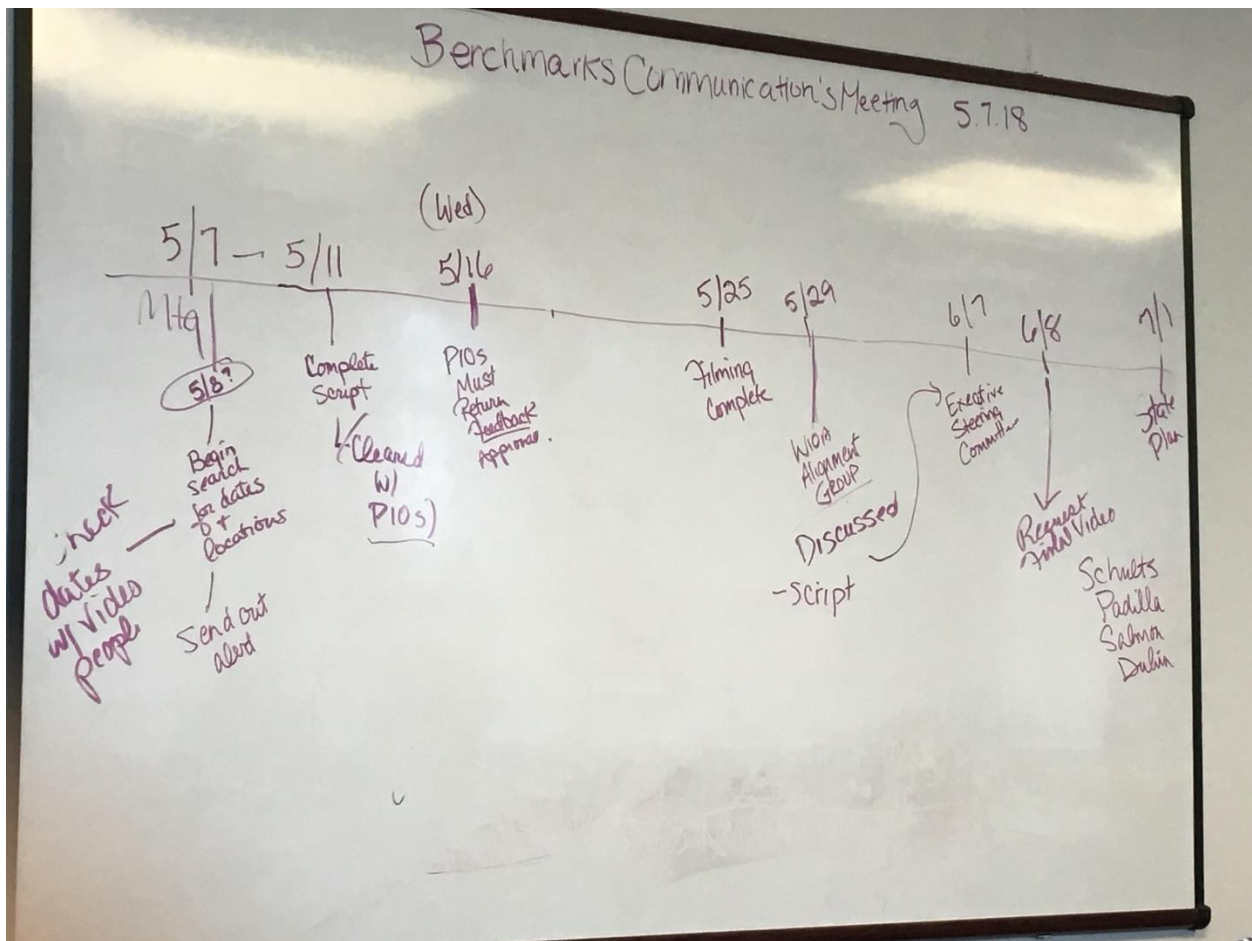 Benchmarks Communication's Meeting 5.7.18
(Wed)
5/7 — 5/11
5/16
5/25
5/29
6/7
6/8
7/1
Mtg
5/8?
Begin
search
for dates
+
locations
Send out
Check
dates
w/ Video
people
Complete
Script
(Cleared
w/
PIOs)
PIOs
Must
Return
Feedback
Approval.
Filming
Complete
WIOA
Alignment
GROUP
Discussed
-Script
Exective
Steering
Committee
Request
Final Video
State
Plan
Schultz
Padilla
Salmon